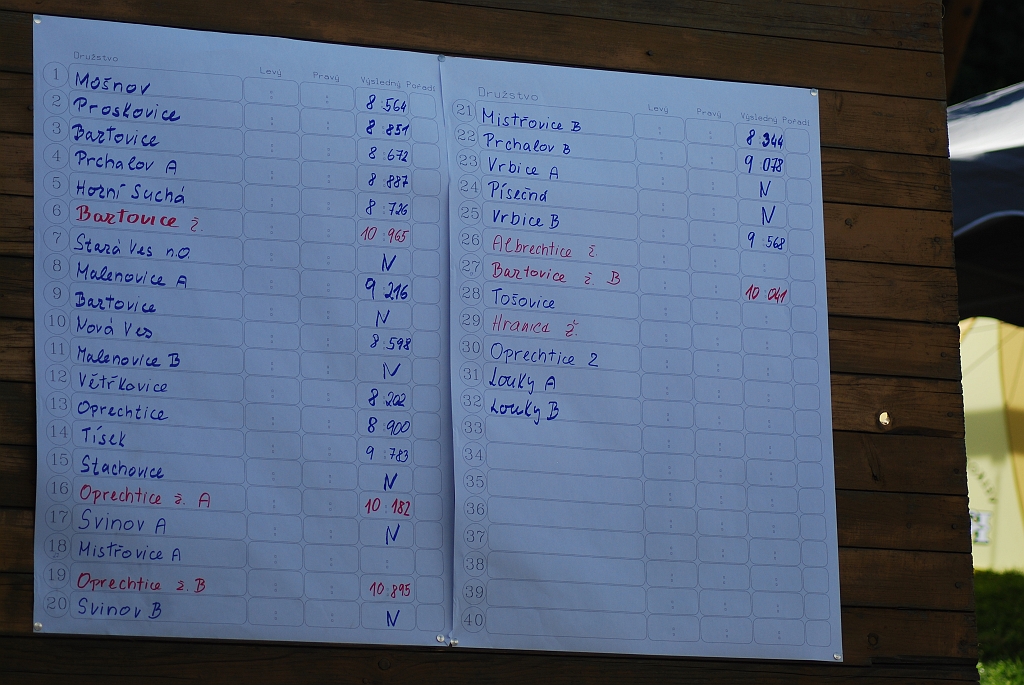 Družstvo Levý Pravý Výsledný Pořadí
1 Mošnov : : 8:564
2 Proskovice : : 8:851
3 Bartovice : : 8:672
4 Prchalov A : : 8:887
5 Horní Suchá : : 8:726
6 Bartovice ž. : : 10:965
7 Stará Ves n.O : : N
8 Malenovice A : : 9:216
9 Bartovice : : N
10 Nová Ves : : 8:598
11 Malenovice B : : N
12 Větřkovice : : 8:202
13 Oprechtice : : 8:900
14 Tísek : : 9:783
15 Stachovice : : N
16 Oprechtice ž. A : : 10:182
17 Svinov A : : N
18 Mistřovice A : : :
19 Oprechtice ž. B : : 10:895
20 Svinov B : : N
Družstvo Levý Pravý Výsledný Pořadí
21 Mistřovice B : : 8:344
22 Prchalov B : : 9:078
23 Vrbice A : : N
24 Písečná : : N
25 Vrbice B : : 9:568
26 Albrechtice ž. : : :
27 Bartovice ž. B : : 10:041
28 Tošovice : : :
29 Hranice ž. : : :
30 Oprechtice 2 : : :
31 Louky A : : :
32 Louky B : : :
33 : : :
34 : : :
35 : : :
36 : : :
37 : : :
38 : : :
39 : : :
40 : : :